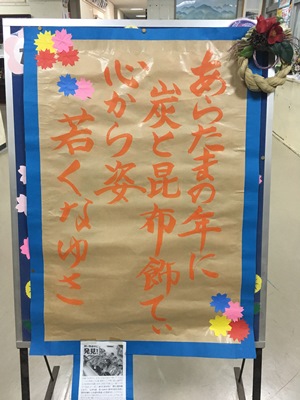 あらたまの年に
炭と昆布飾てぃ
心から姿
若くなゆさ
発見!